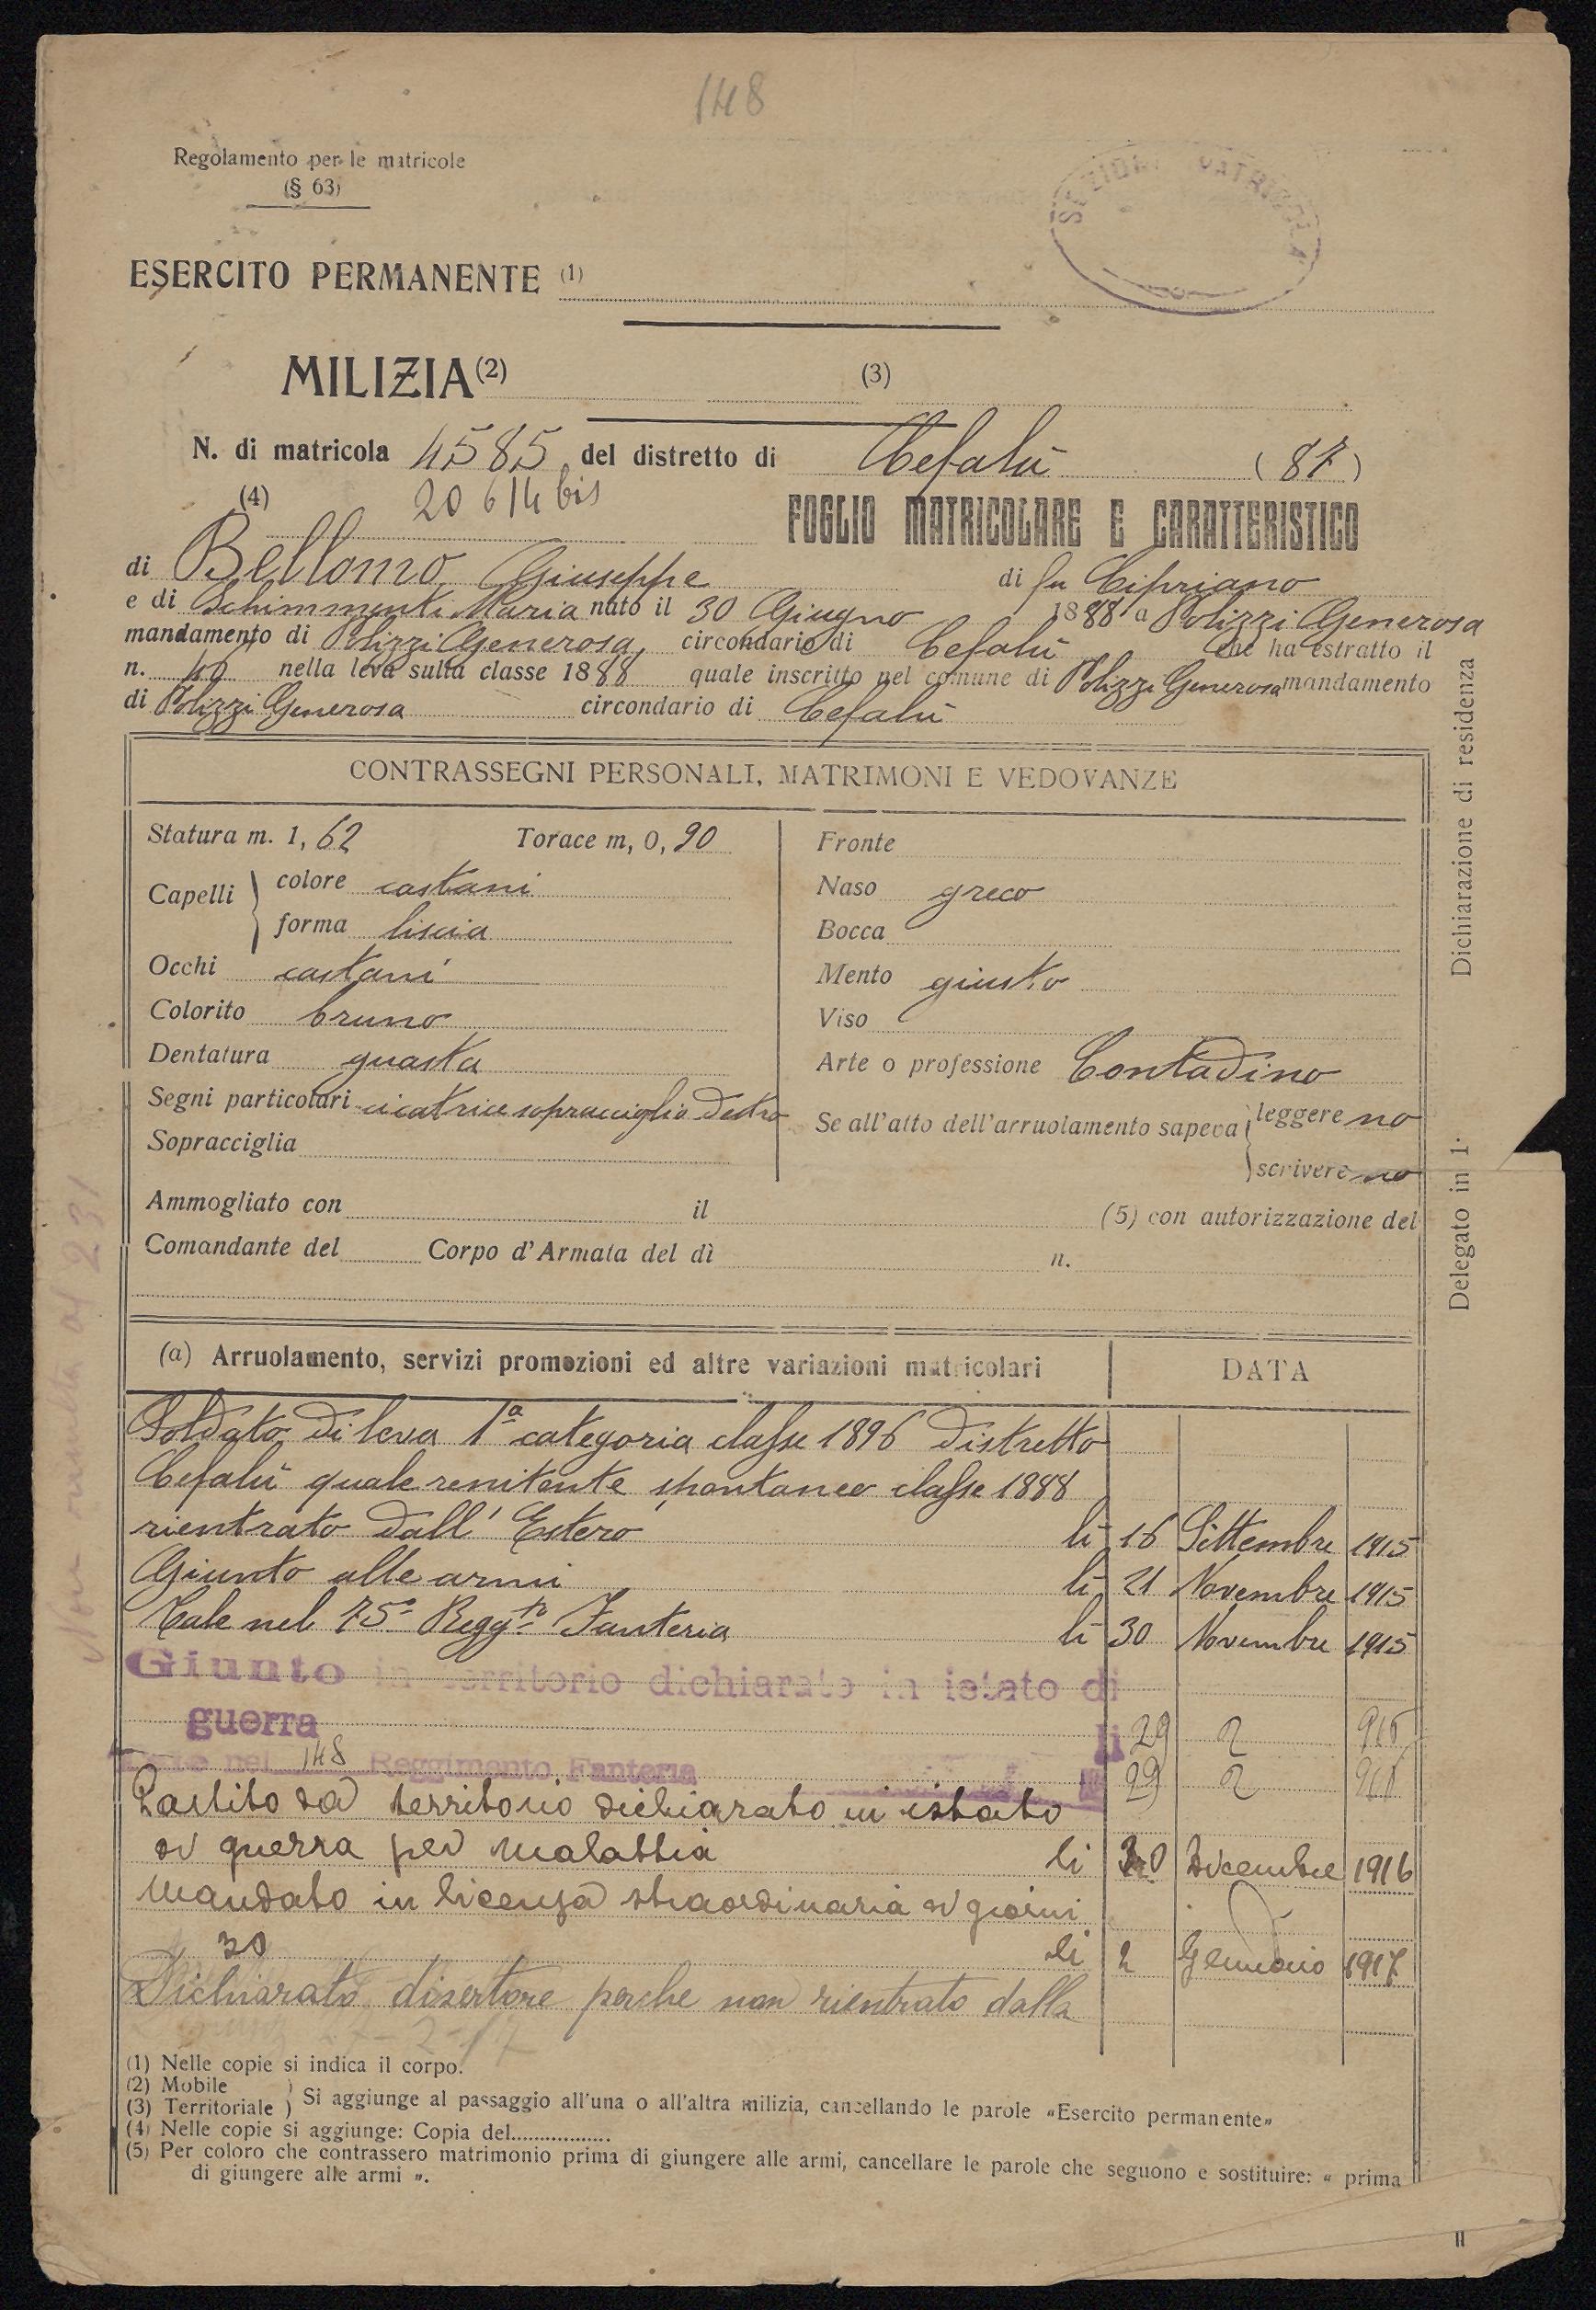 148
Regolamento per le matricole
(§ 63)
SEZIONE MATRICOLA
ESERCITO PERMANENTE (1)
MILIZIA (2) (3)
N. di matricola 4585 del distretto di Cefalù (87)
(4) 20614 bis
FOGLIO MATRICOLARE E CARATTERISTICO
di Bellomo Giuseppe di fu Cipriano
e di Schimmenti Maria nato il 30 Giugno 1888 a Polizzi Generosa
mandamento di Polizzi Generosa, circondario di Cefalù che ha estratto il
n. 40 nella leva sulla classe 1888 quale inscritto nel comune di Polizzi Generosa mandamento
di Polizzi Generosa circondario di Cefalù
CONTRASSEGNI PERSONALI, MATRIMONI E VEDOVANZE
Statura m. 1, 62 Torace m, 0, 90
Capelli colore castani
forma liscia
Occhi castani
Colorito bruno
Dentatura guasta
Segni particolari cicatrice sopracciglio destro
Sopracciglia
Fronte
Naso greco
Bocca
Mento giusto
Viso
Arte o professione Contadino
Se all'atto dell'arruolamento sapeva leggere no
scrivere no
Ammogliato con il (5) con autorizzazione del
Comandante del Corpo d'Armata del dì n.
Dichiarazione di residenza
Delegato in 1·
(a) Arruolamento, servizi promozioni ed altre variazioni matricolari DATA
Soldato di leva 1ª categoria classe 1896 distretto
Cefalù quale renitente spontaneo classe 1888
rientrato dall'Estero li 16 Settembre 1915
Giunto alle armi li 21 Novembre 1915
Tale nel 75º Reggto Fanteria li 30 Novembre 1915
Giunto in territorio dichiarato in istato di
guerra li 29 2 916
Tale nel 148 Reggimento Fanteria li 29 2 916
Partito da territorio dichiarato in istato
di guerra per malattia li 30 Dicembre 1916
Mandato in licenza straordinaria di giorni
30 li 2 Gennaio 1917
Dichiarato disertore perche non rientrato dalla
(1) Nelle copie si indica il corpo.
(2) Mobile )
(3) Territoriale ) Si aggiunge al passaggio all'una o all'altra milizia, cancellando le parole «Esercito permanente»
(4) Nelle copie si aggiunge: Copia del.................
(5) Per coloro che contrassero matrimonio prima di giungere alle armi, cancellare le parole che seguono e sostituire: « prima
di giungere alle armi ».